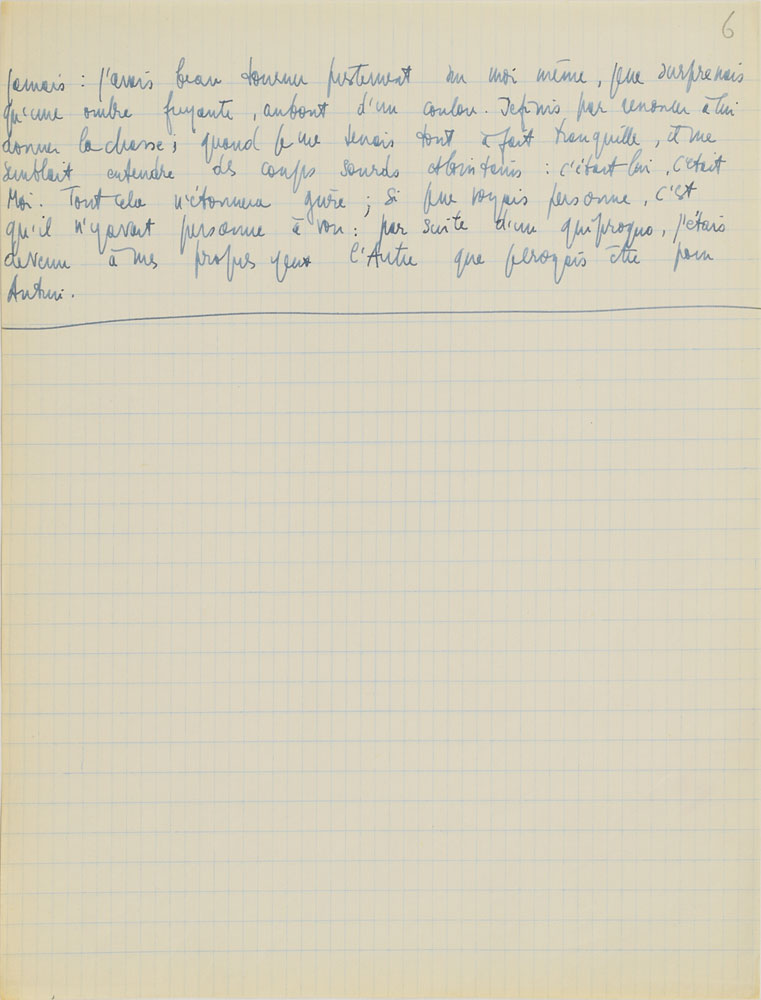 6
jamais : j'avais beau tourner prestement sur moi même, je ne surprenais
qu'une ombre fuyante, au bout d'un couloir. Je finis par renoncer à lui
donner la chasse ; quand je me tenais tout à fait tranquille, il me
semblait entendre des coups sourds et lointains : c'était lui, c'était
Moi. Tout cela n'étonnera guère ; si je ne voyais personne, c'est
qu'il n'y avait personne à voir : par suite d'un quiproquo, j'étais
devenu à mes propres yeux l'Autre que je croyais être pour
Autrui.